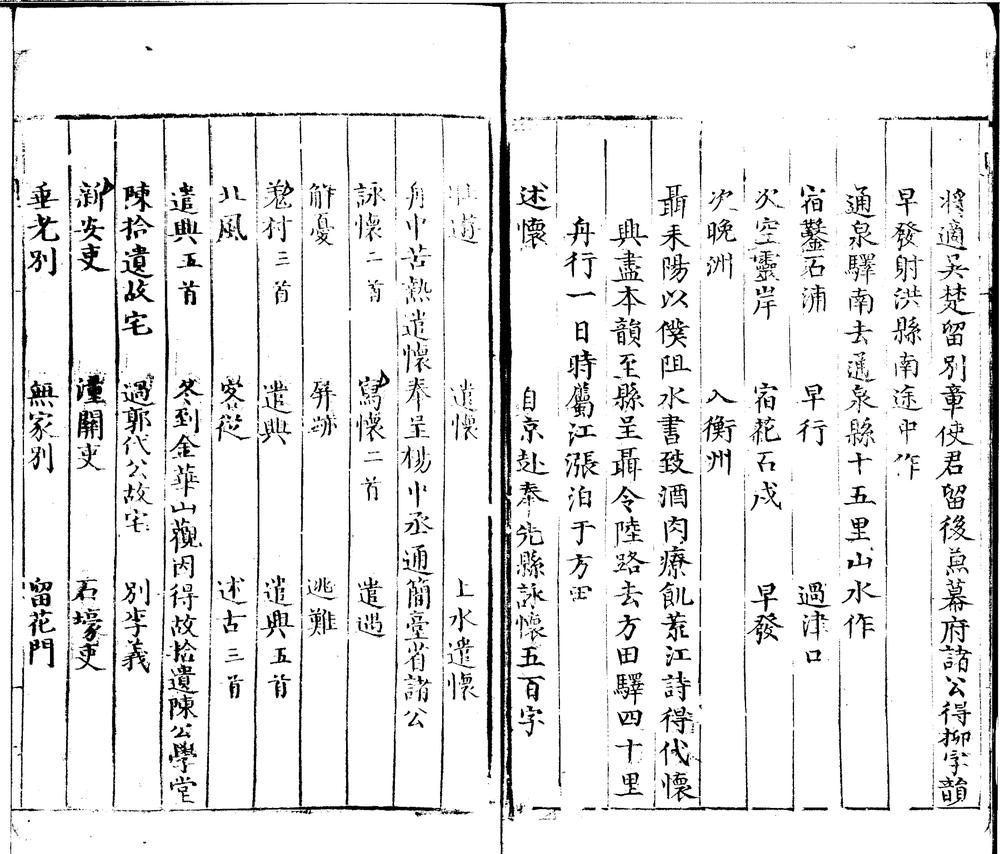 將適吳楚留別章使君留後兼幕府諸公得柳字韻
早發射洪縣南途中作
通泉驛南去通泉縣十五里山水作
宿鑿石浦 早行 過津口
次空靈岸 宿花石戍 早發
次晚洲 入衡州
聶耒陽以僕阻水書致酒肉療飢荒江詩得代懷
興盡本韻至縣呈聶令陸路去方田驛四十里
舟行一日時屬江漲泊于方田
述懷 自京赴奉先縣詠懷五百字
壯遊 遣懷 上水遣懷
舟中苦熱遣懷奉呈楊中丞通簡臺省諸公
詠懷二首 寫懷二首 遣遇
解憂 屏跡 逃難
羌村三首 遣興 遣興五首
北風 客從 述古三首
遣興五首 冬到金華山觀因得故拾遺陳公學堂
陳拾遺故宅 過郭代公故宅 別李義
新安吏 潼關吏 石壕吏
垂老別 無家別 留花門